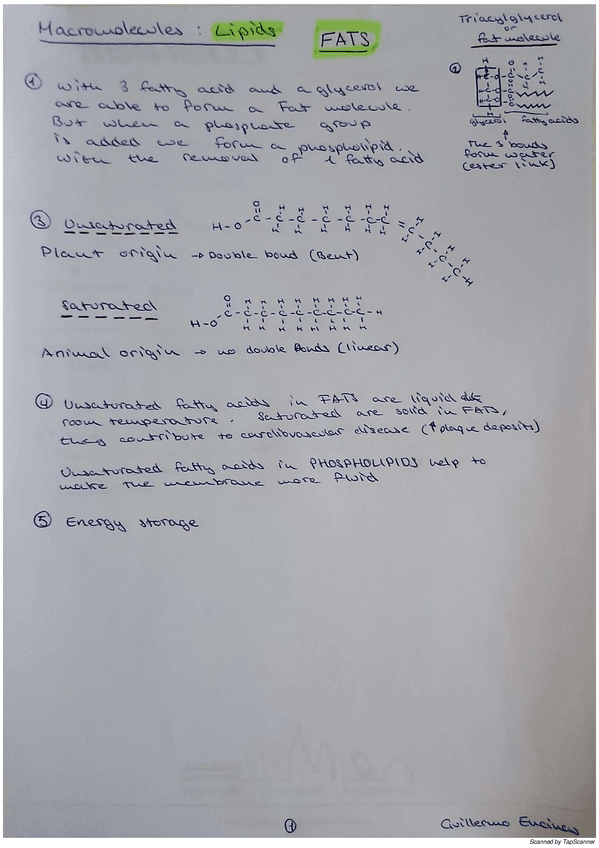 Macromolecules : Lipids
FATS
Triacylglycerol
or
fat molecule
① with 3 fatty acid and a glycerol we
are able to form a Fat molecule.
But when a phosphate group
is added we form a phospholipid.
with the removal of 1 fatty acid
②
glycerol fatty acids
The 3 bonds
form water
(ester link)
③ Unsaturated
Plant origin → Double bond (Bent)
Saturated
Animal origin → no double Bonds (linear)
④ Unsaturated fatty acids in FATS are liquid
room temperature. Saturated are solid in FATS,
they contribute to cardiovascular disease (↑ plaque deposits)
Unsaturated fatty acids in PHOSPHOLIPIDS help to
make the membrane more fluid
⑤ Energy storage
①
Guillermo
Scanned by TapScanner